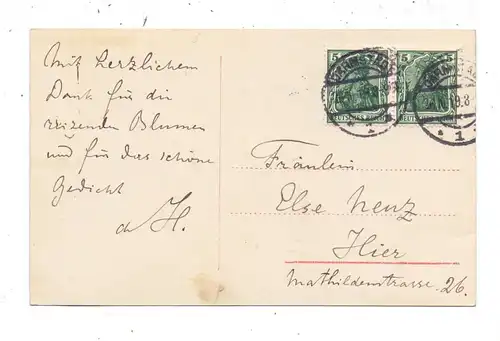 Mit herzlichem
Dank für die
reizenden Blumen
und für das schöne
Gedicht
H.
5
5
DEUTSCHES REICH
DEUTSCHES REICH
Fräulein
Else
Hier
Mathildenstrasse 26.